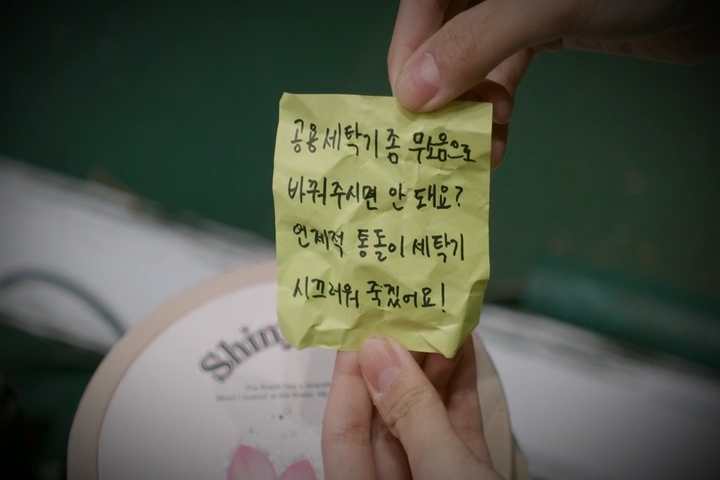 공용세탁기 좀 무소음으로
바꿔주시면 안 돼요?
언제적 통돌이 세탁기
시끄러워 죽겠어요!
Shiny